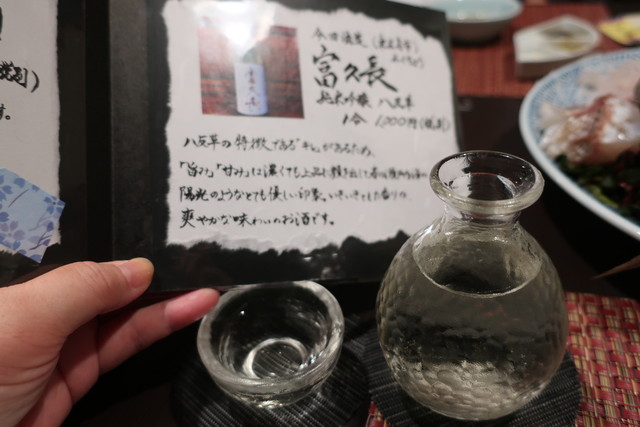 今田酒造(広島県)
富久長
純米吟醸 八反草
1合 1,000円(税別)
八反草の特徴である「キレ」があるため、
「旨み」「甘み」は濃くても上品な
陽光のようなとても優しい印象。いきいきとした香りの
爽やかな味わいのお酒です。
富久長
す。